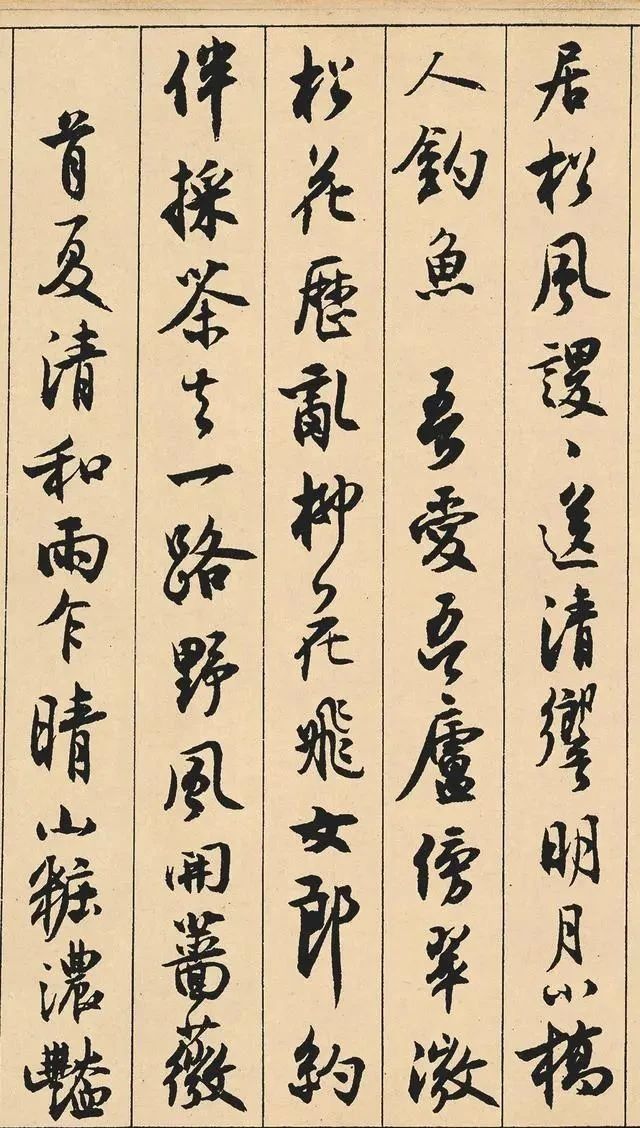 居松風謖〻送清響明月小橋
人釣魚 吾愛吾廬傍翠微
松花歷亂柳花飛女郎約
伴採茶去一路野風開薔薇
首夏清和雨乍晴山糚濃豔